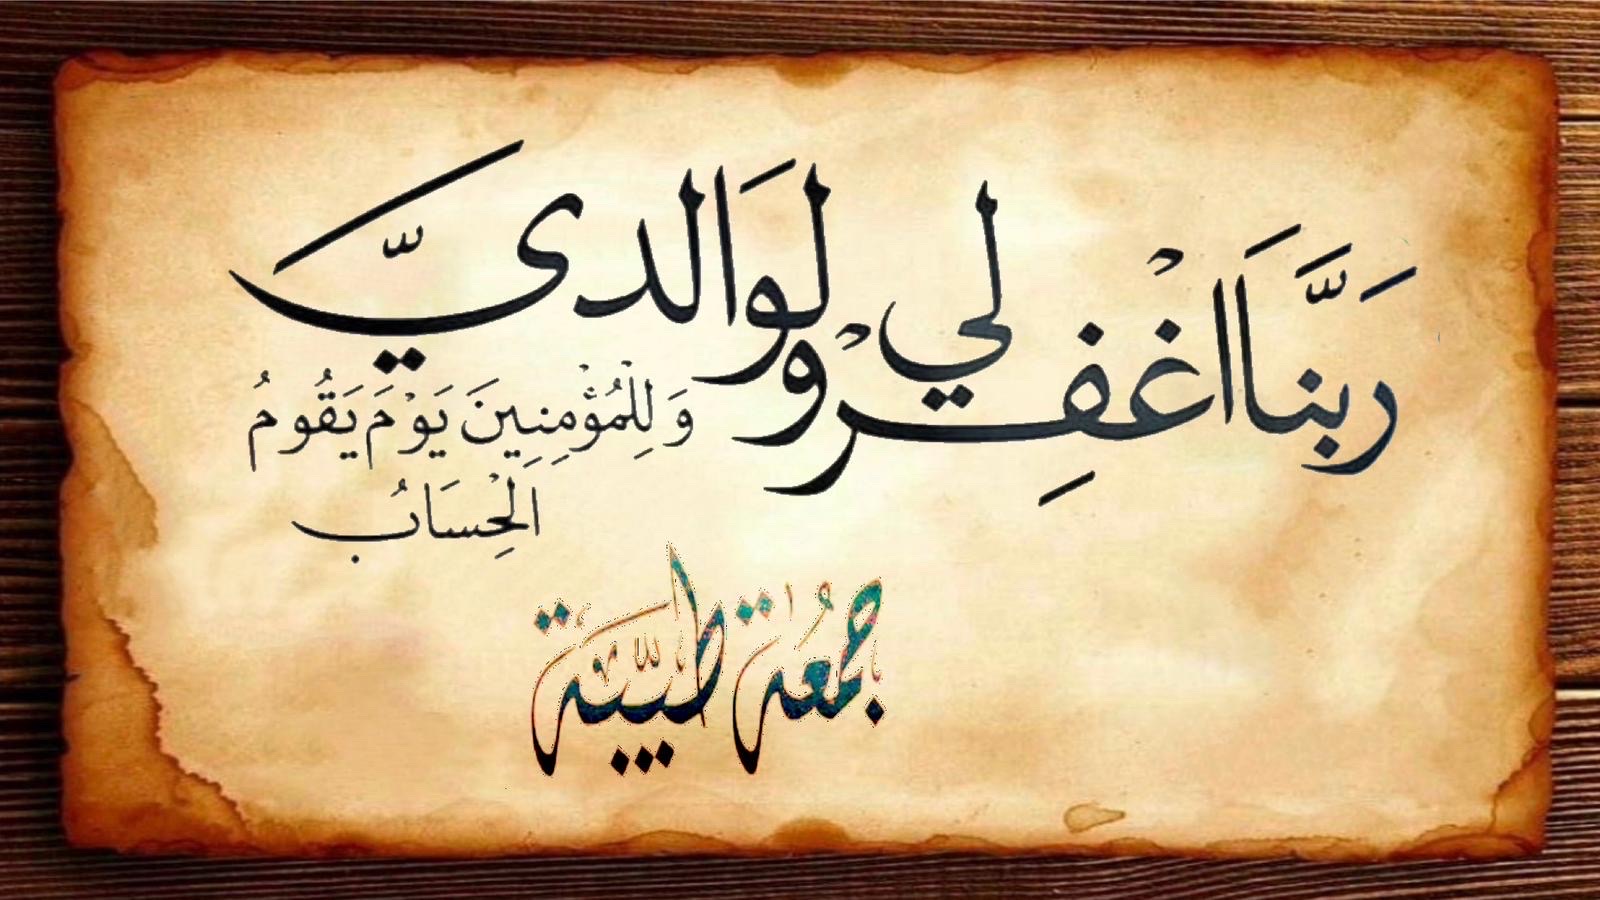 رَبَّنَا اغْفِرْ لِي وَلِوَالِدَيَّ
وَلِلْمُؤْمِنِينَ يَوْمَ يَقُومُ
الْحِسَابُ
جمُعة طيّبَة